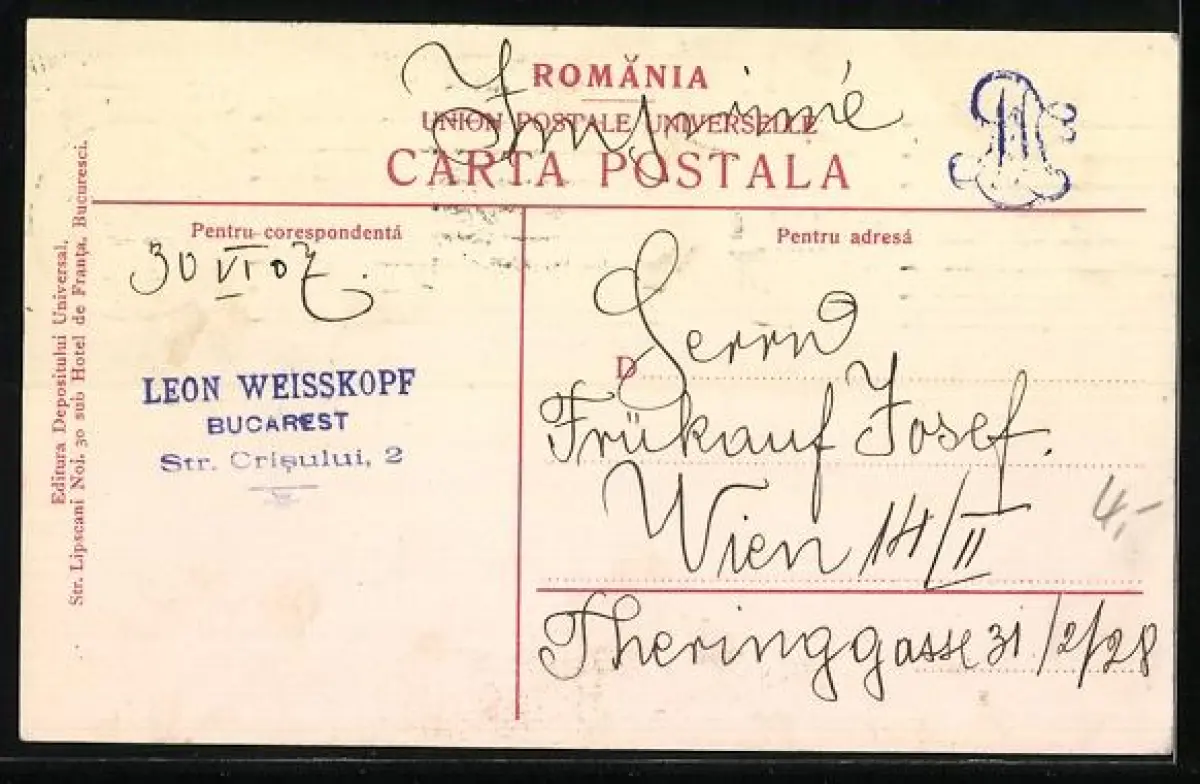 ROMĂNIA
UNION POSTALE UNIVERSELLE
Imprimé
CARTA POSTALA
Editura Depositului Universal.
Str. Lipscani Noi. 30 sub Hotel de Franța, Bucuresci.
Pentru corespondentă
30 VI 07.
LEON WEISSKOPF
BUCAREST
Str. Crișului, 2
Pentru adresă
D
Herrn
Frükauf Josef.
Wien 14/II
Theringgasse 31/2/28
4,-